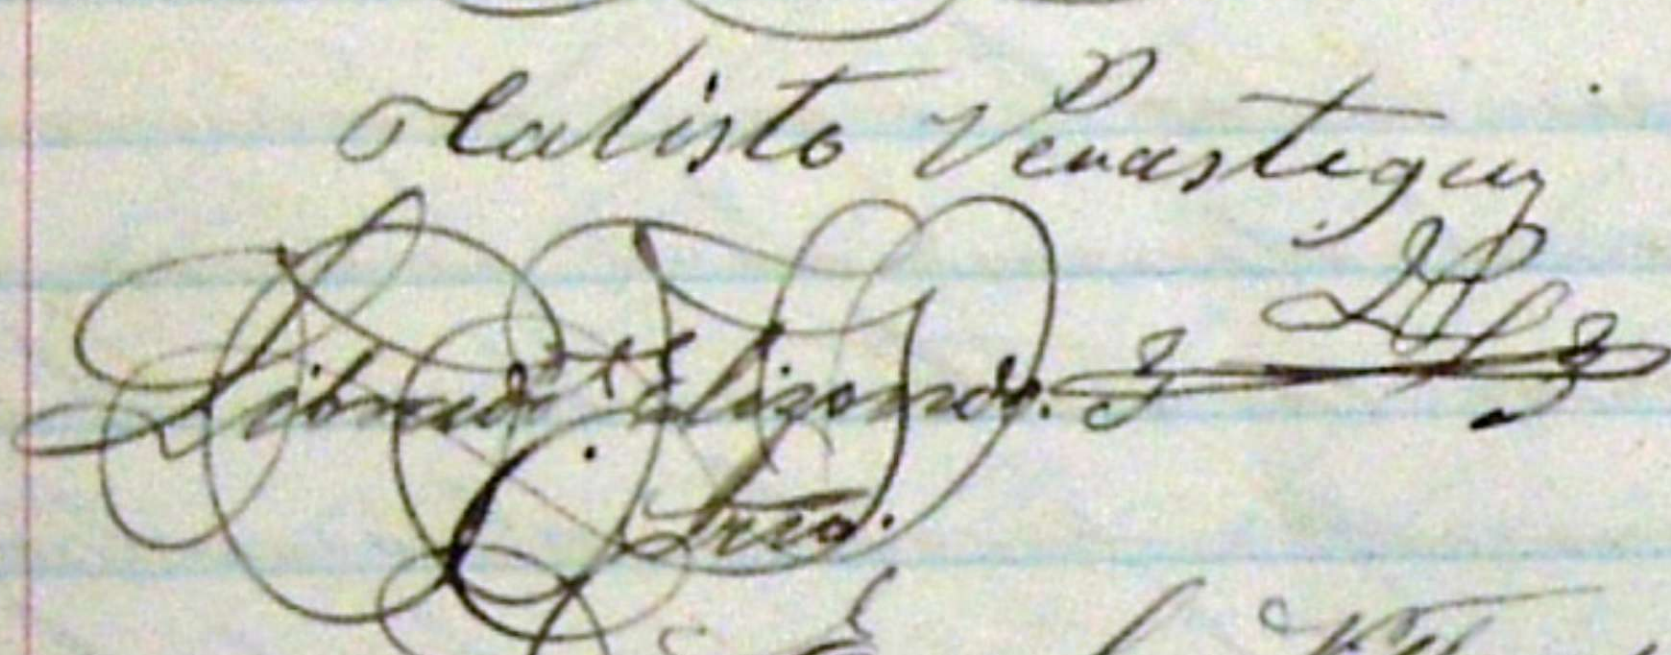 Calisto Verastegui
Librado Elizondo.
Srio.